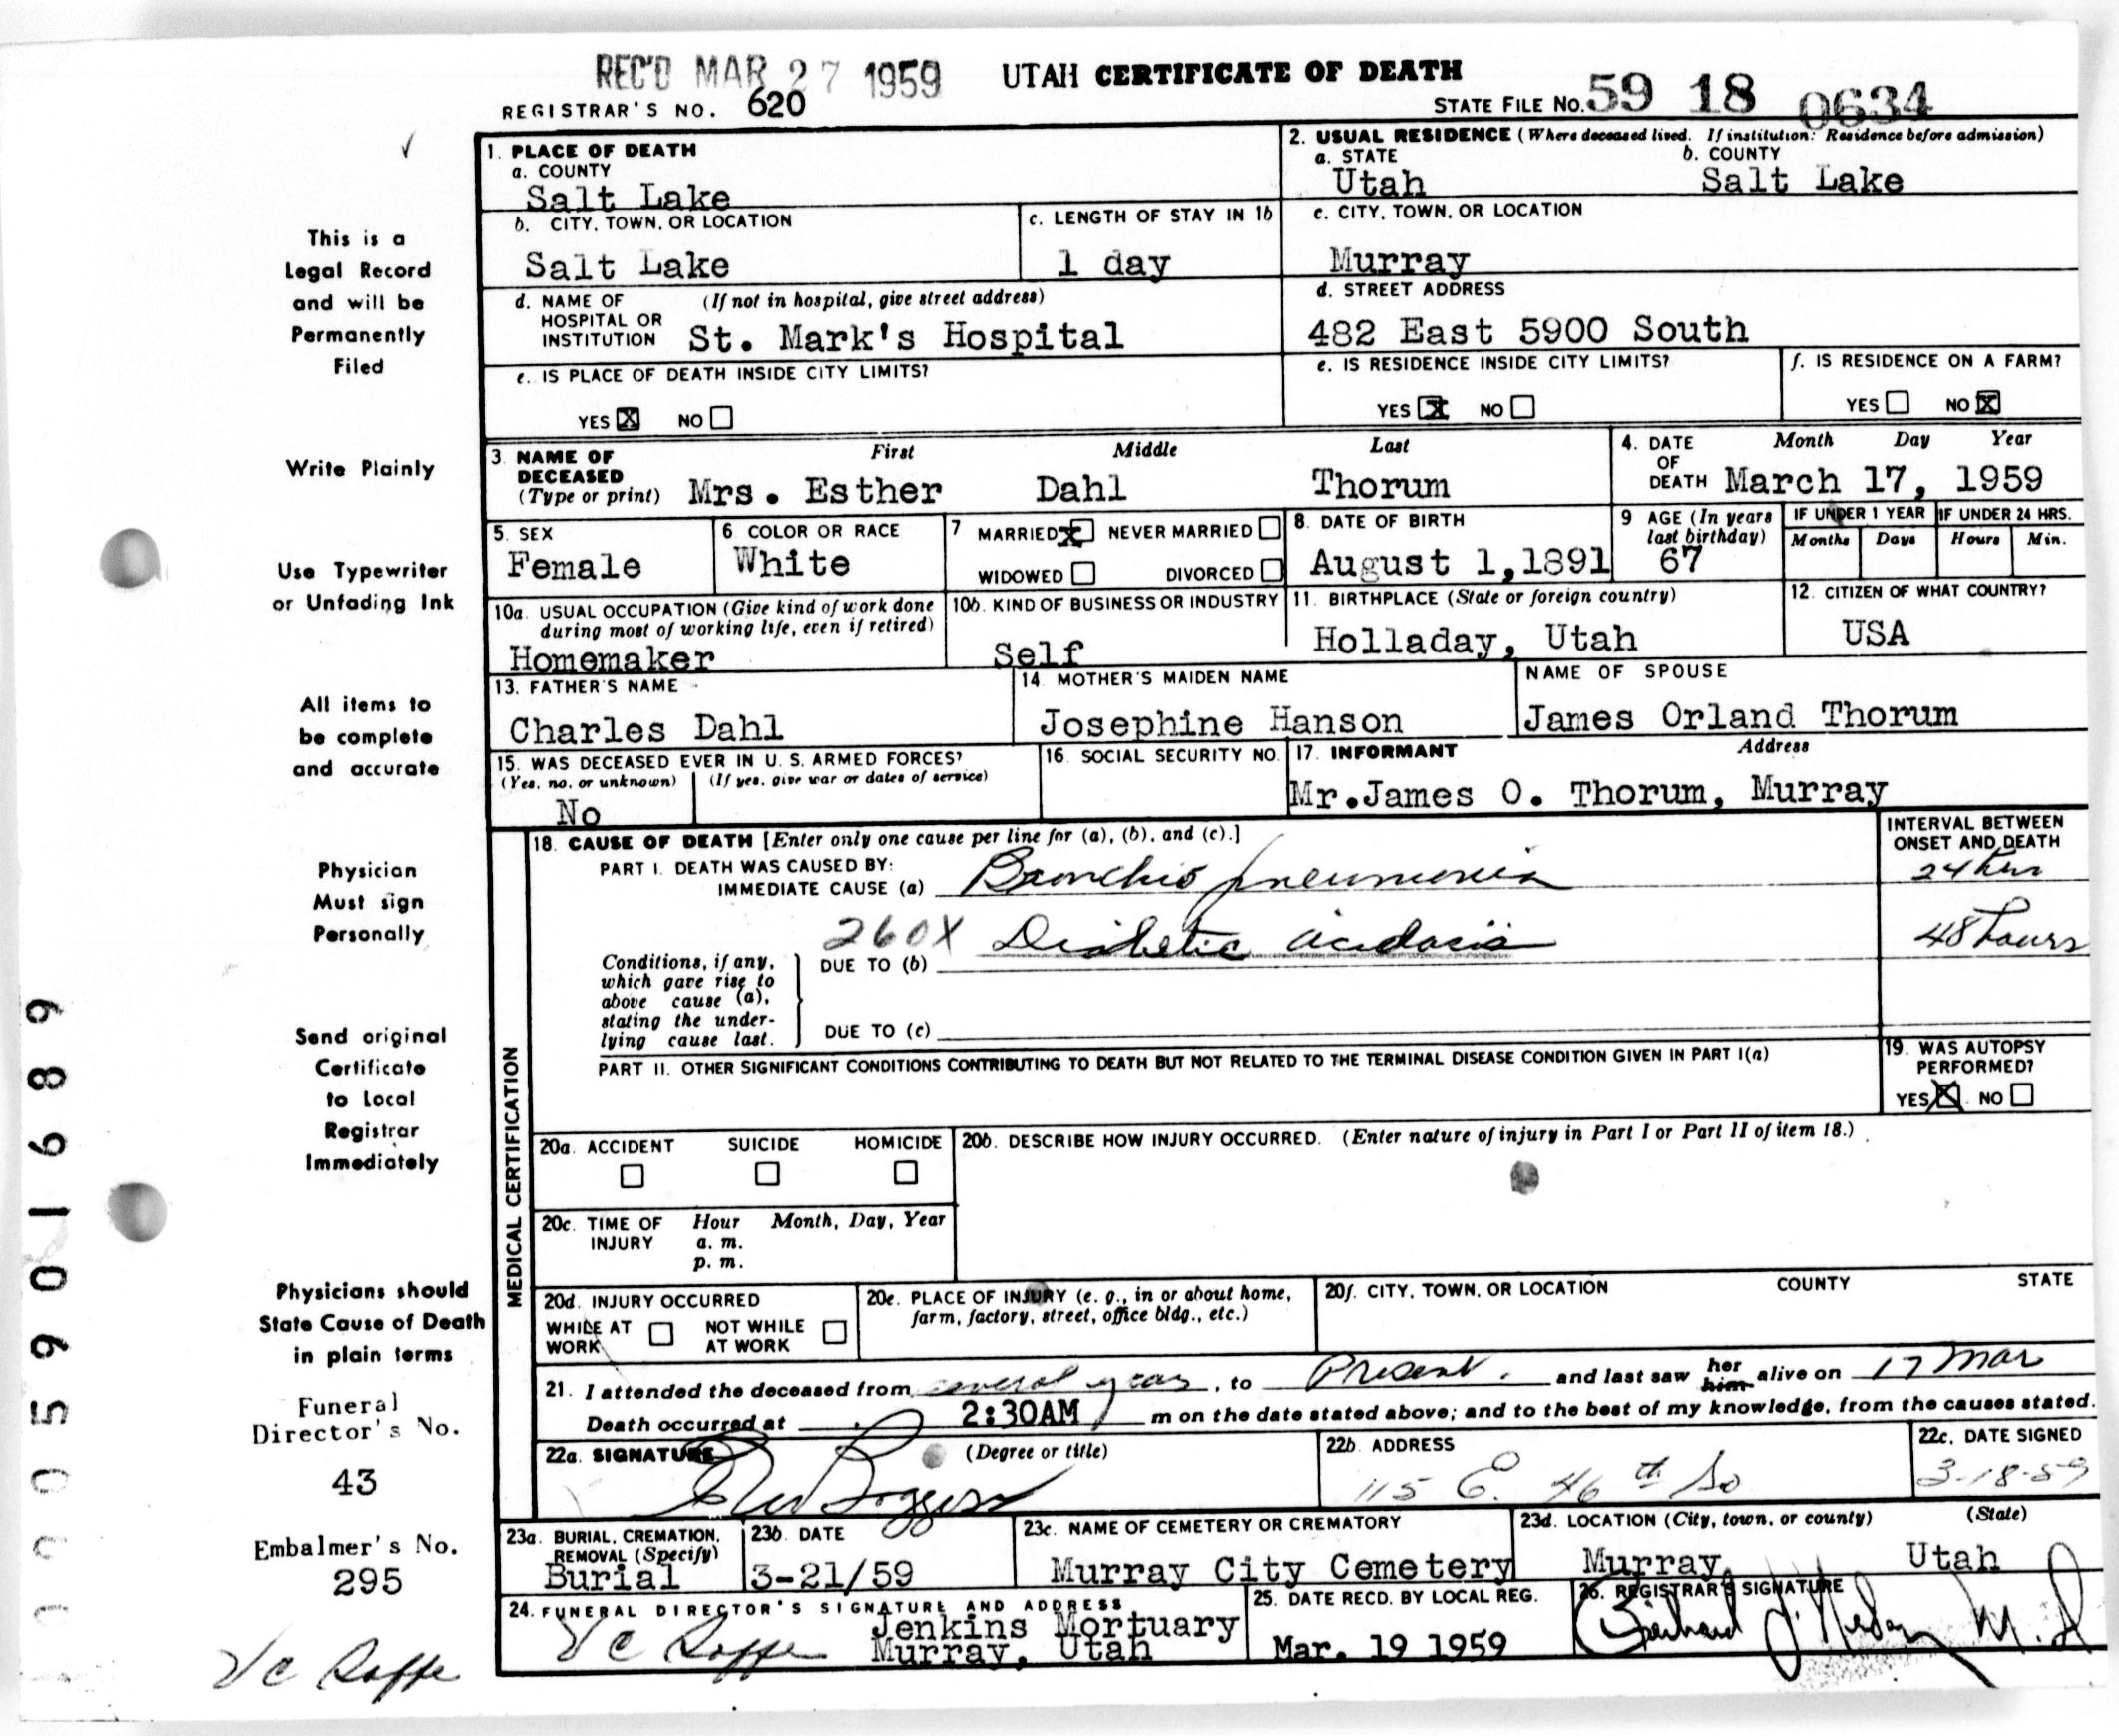 REC'D MAR 27 1959
UTAH CERTIFICATE OF DEATH
REGISTRAR'S NO. 620
STATE FILE No. 59 18 0634
This is a
Legal Record
and will be
Permanently
Filed
Write Plainly
Use Typewriter
or Unfading Ink
All items to
be complete
and accurate
Physician
Must sign
Personally
Send original
Certificate
to Local
Registrar
Immediately
Physicians should
State Cause of Death
in plain terms
Funeral
Director's No.
43
Embalmer's No.
295
1. PLACE OF DEATH
a. COUNTY
Salt Lake
b. CITY, TOWN, OR LOCATION
Salt Lake
c. LENGTH OF STAY IN 1b
1 day
d. NAME OF (If not in hospital, give street address)
HOSPITAL OR
INSTITUTION St. Mark's Hospital
e. IS PLACE OF DEATH INSIDE CITY LIMITS?
YES X NO
2. USUAL RESIDENCE (Where deceased lived. If institution: Residence before admission)
a. STATE b. COUNTY
Utah Salt Lake
c. CITY, TOWN, OR LOCATION
Murray
d. STREET ADDRESS
482 East 5900 South
e. IS RESIDENCE INSIDE CITY LIMITS?
YES X NO
f. IS RESIDENCE ON A FARM?
YES NO X
3. NAME OF DECEASED (Type or print)
First Middle Last
Mrs. Esther Dahl Thorum
4. DATE OF DEATH
Month Day Year
March 17, 1959
5. SEX
Female
6. COLOR OR RACE
White
7 MARRIED X NEVER MARRIED
WIDOWED DIVORCED
8. DATE OF BIRTH
August 1,1891
9 AGE (In years
last birthday)
67
IF UNDER 1 YEAR IF UNDER 24 HRS.
Months Days Hours Min.
10a. USUAL OCCUPATION (Give kind of work done
during most of working life, even if retired)
Homemaker
10b. KIND OF BUSINESS OR INDUSTRY
Self
11. BIRTHPLACE (State or foreign country)
Holladay, Utah
12. CITIZEN OF WHAT COUNTRY?
USA
13. FATHER'S NAME
Charles Dahl
14. MOTHER'S MAIDEN NAME
Josephine Hanson
NAME OF SPOUSE
James Orland Thorum
15. WAS DECEASED EVER IN U. S. ARMED FORCES?
(Yes, no, or unknown) (If yes, give war or dates of service)
No
16. SOCIAL SECURITY NO.
17. INFORMANT Address
Mr.James O. Thorum, Murray
MEDICAL CERTIFICATION
18. CAUSE OF DEATH [Enter only one cause per line for (a), (b), and (c).]
INTERVAL BETWEEN
ONSET AND DEATH
PART I. DEATH WAS CAUSED BY:
IMMEDIATE CAUSE (a) Bronchio pneumonia 24 hrs
260X Diabetic acidosis 48 hours
Conditions, if any,
which gave rise to
above cause (a),
stating the under-
lying cause last.
DUE TO (b)
DUE TO (c)
PART II. OTHER SIGNIFICANT CONDITIONS CONTRIBUTING TO DEATH BUT NOT RELATED TO THE TERMINAL DISEASE CONDITION GIVEN IN PART I(a)
19. WAS AUTOPSY
PERFORMED?
YES X NO
20a. ACCIDENT SUICIDE HOMICIDE
20b. DESCRIBE HOW INJURY OCCURRED. (Enter nature of injury in Part I or Part II of item 18.)
20c. TIME OF INJURY
Hour Month, Day, Year
a. m.
p. m.
20d. INJURY OCCURRED
WHILE AT WORK NOT WHILE AT WORK
20e. PLACE OF INJURY (e. g., in or about home,
farm, factory, street, office bldg., etc.)
20f. CITY, TOWN, OR LOCATION COUNTY STATE
21. I attended the deceased from several years, to Present, and last saw her him alive on 17 Mar
Death occurred at 2:30AM m on the date stated above; and to the best of my knowledge, from the causes stated.
22a. SIGNATURE (Degree or title)
22b. ADDRESS
115 E. 46th So
22c. DATE SIGNED
3-18-59
23a. BURIAL, CREMATION,
REMOVAL (Specify)
Burial
23b. DATE
3-21/59
23c. NAME OF CEMETERY OR CREMATORY
Murray City Cemetery
23d. LOCATION (City, town, or county) (State)
Murray, Utah
24. FUNERAL DIRECTOR'S SIGNATURE AND ADDRESS
Jenkins Mortuary
Murray, Utah
25. DATE RECD. BY LOCAL REG.
Mar. 19 1959
26. REGISTRAR'S SIGNATURE